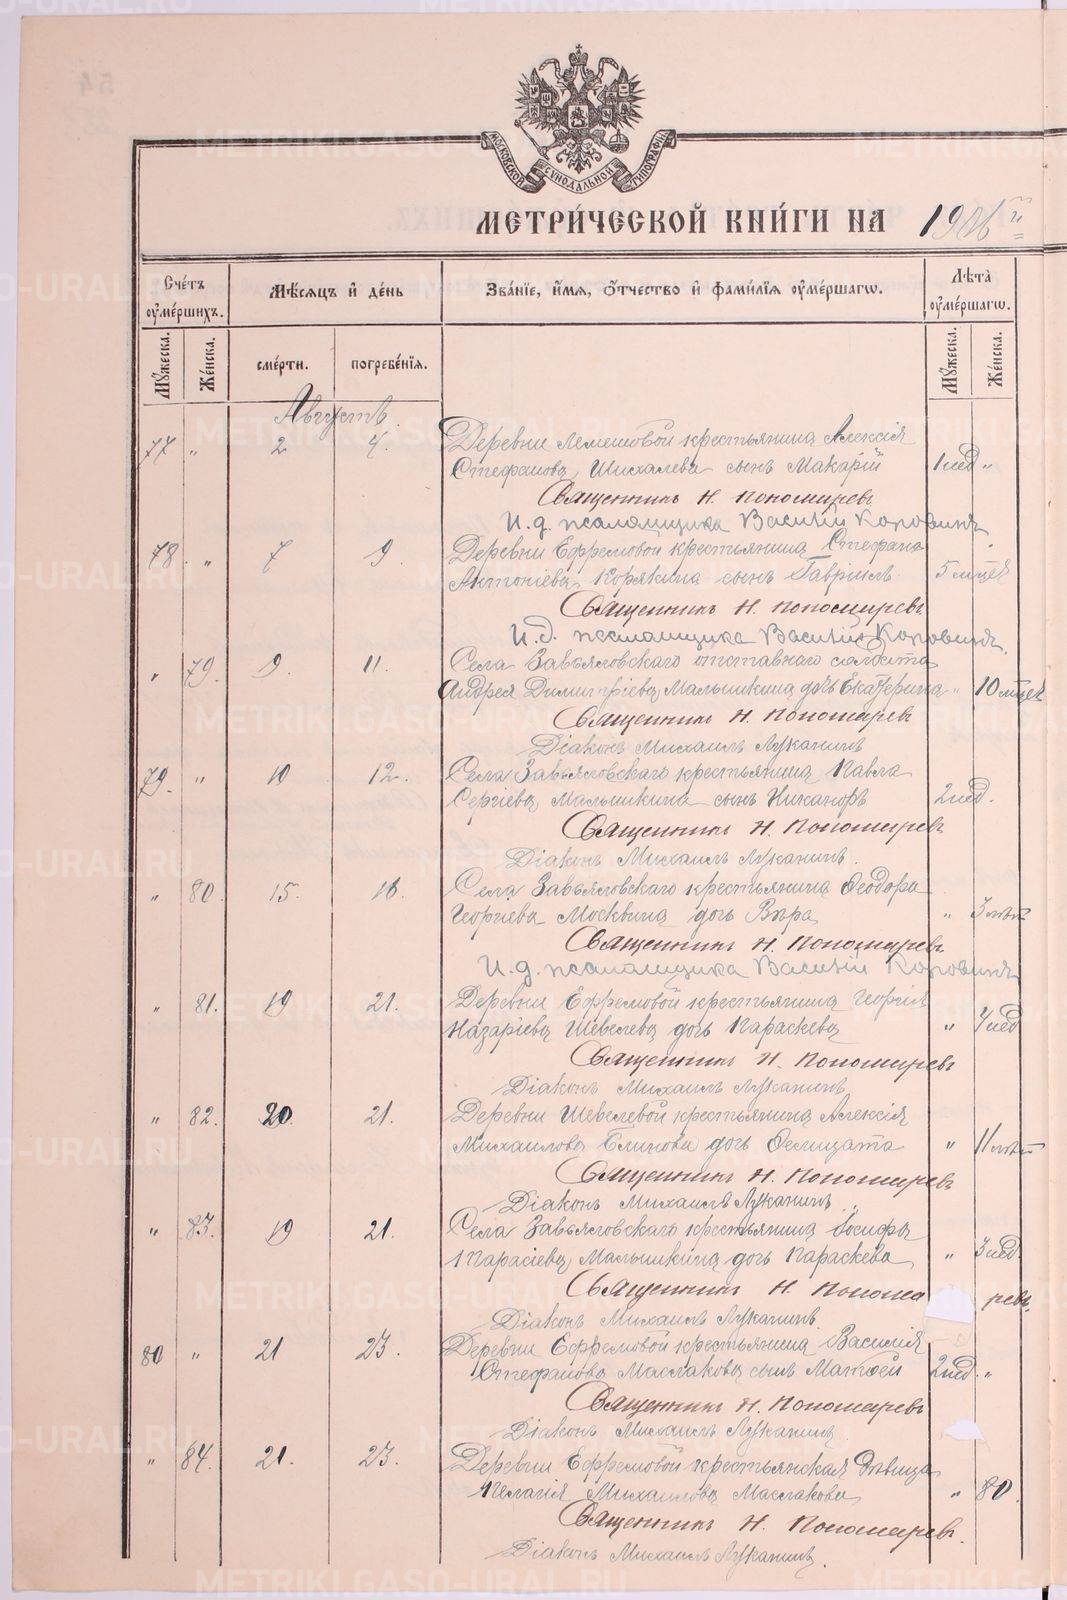 МОСКОВСКОЙ СѴНОДАЛЬНОЙ ТИПОГРАФІИ
МЕТРИ́ЧЕСКОЙ КНИ́ГИ НА 1906й
Сче́тъ ᲂумершихъ. Мѣсяцъ и де́нь Зва́ніе, и́мя, о́тчество и фами́лія ᲂуме́ршагѡ. Лѣта̀ ᲂуме́ршагѡ.
Мꙋжеска. Же́нска. сме́рти. погребе́нія. Мꙋжеска. Же́нска.
Августъ.
77 " 2 4. Деревни Лемешовой крестьянина Алексія
Стефанова Шихалева сынъ Макарій 1 нед "
Священникъ Н. Пономаревъ
И.д. псаломщика Василій Коровинъ
78. " 7 9. Деревни Ефремовой крестьянина Стефана
Антоніева Корякина сынъ Гавріилъ. 5 мцев "
Священникъ Н. Пономаревъ
И.д. псаломщика Василій Коровинъ.
" 79. 9. 11. Села Завьяловскаго отставнаго солдата
Андрея Димитріева Малышкина дочь Екатерина " 10 мцев
Священникъ Н. Пономаревъ
Діаконъ Михаилъ Луканинъ
79. " 10 12. Села Завьяловскаго крестьянина Павла
Сергіева Малышкина сынъ Никаноръ 2 нед.
Священникъ Н. Пономаревъ
Діаконъ Михаилъ Луканинъ.
" 80. 15. 16. Села Завьяловскаго крестьянина Ѳеодора
Георгіева Москвина дочь Вѣра " 3 лѣт
Священникъ Н. Пономаревъ
И.д. псаломщика Василій Коровинъ
" 81. 19 21. Деревни Ефремовой крестьянина Георгія
Назаріева Шевелева дочь Параскева " 4 нед
Священникъ Н. Пономаревъ
Діаконъ Михаилъ Луканинъ
" 82. 20. 21. Деревни Шевелевой крестьянина Алексія
Михаилова Блинова дочь Фелицата " 11 лѣт
Священникъ Н. Пономаревъ
Діаконъ Михаилъ Луканинъ.
" 83. 19 21. Села Завьяловскаго крестьянина Іосифа
Малышкина дочь Параскева " 3 нед.
Священникъ Н. Понома ревъ
Діаконъ Михаилъ Луканинъ.
80 " 21 23. Деревни Ефремовой крестьянина Василія
Стефанова Маслакова сынъ Матѳей 2 нед. "
Священникъ Н. Пономаревъ
Діаконъ Михаилъ Луканинъ.
" 84. 21. 23. Деревни Ефремовой крестьянская дѣвица
Пелагія Михаилова Маслакова " 80.
Священникъ Н. Пономаревъ.
Діаконъ Михаилъ Луканинъ.
METRIKI.GASO-URAL.RU